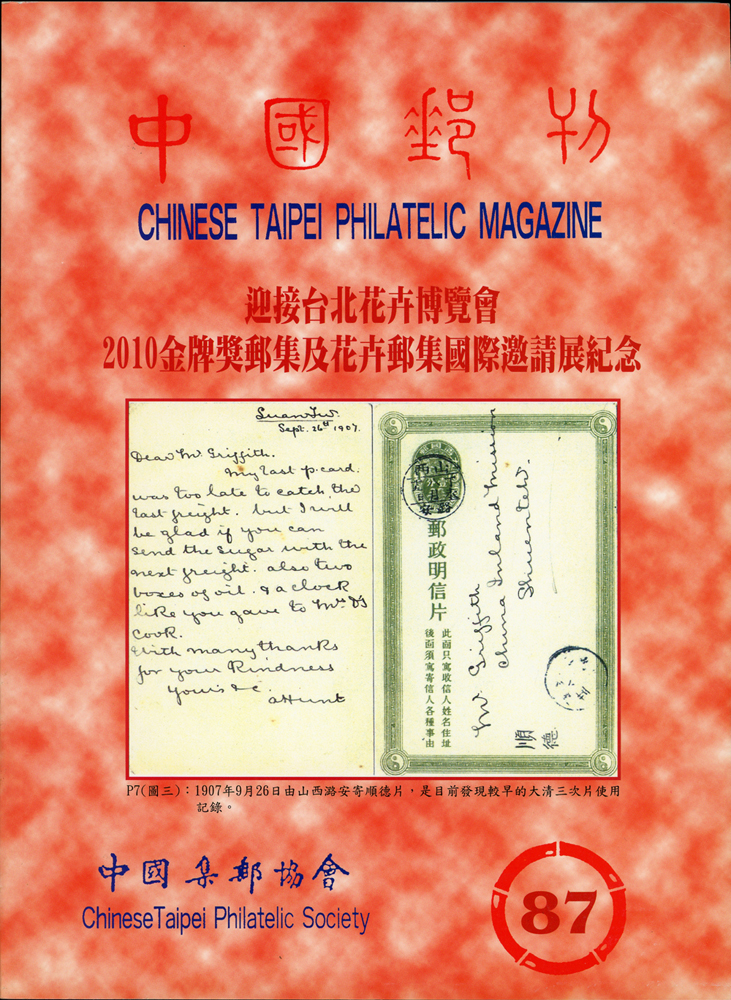 中國郵刊
CHINESE TAIPEI PHILATELIC MAGAZINE
迎接台北花卉博覽會
2010金牌獎郵集及花卉郵集國際邀請展紀念
Sept. 26th 1907.
Dear Mr Griffith.
My last p.card.
was too late to catch the
last freight. but I will
be glad if you can
send the sugar with the
next freight. also two
boxes of oil. & a clock
like you gave to Mrs D's
cook.
With many thanks
for your kindness
yours &c.
AHunt
郵政明信片
此面只寫收信人姓名住址
後面須寫寄信人各種事由
Mr. Griffith
China Inland Mission
Shuenteh.
順德
P7(圖三)：1907年9月26日由山西潞安寄順德片，是目前發現較早的大清三次片使用
記錄。
中國集郵協會
ChineseTaipei Philatelic Society
87